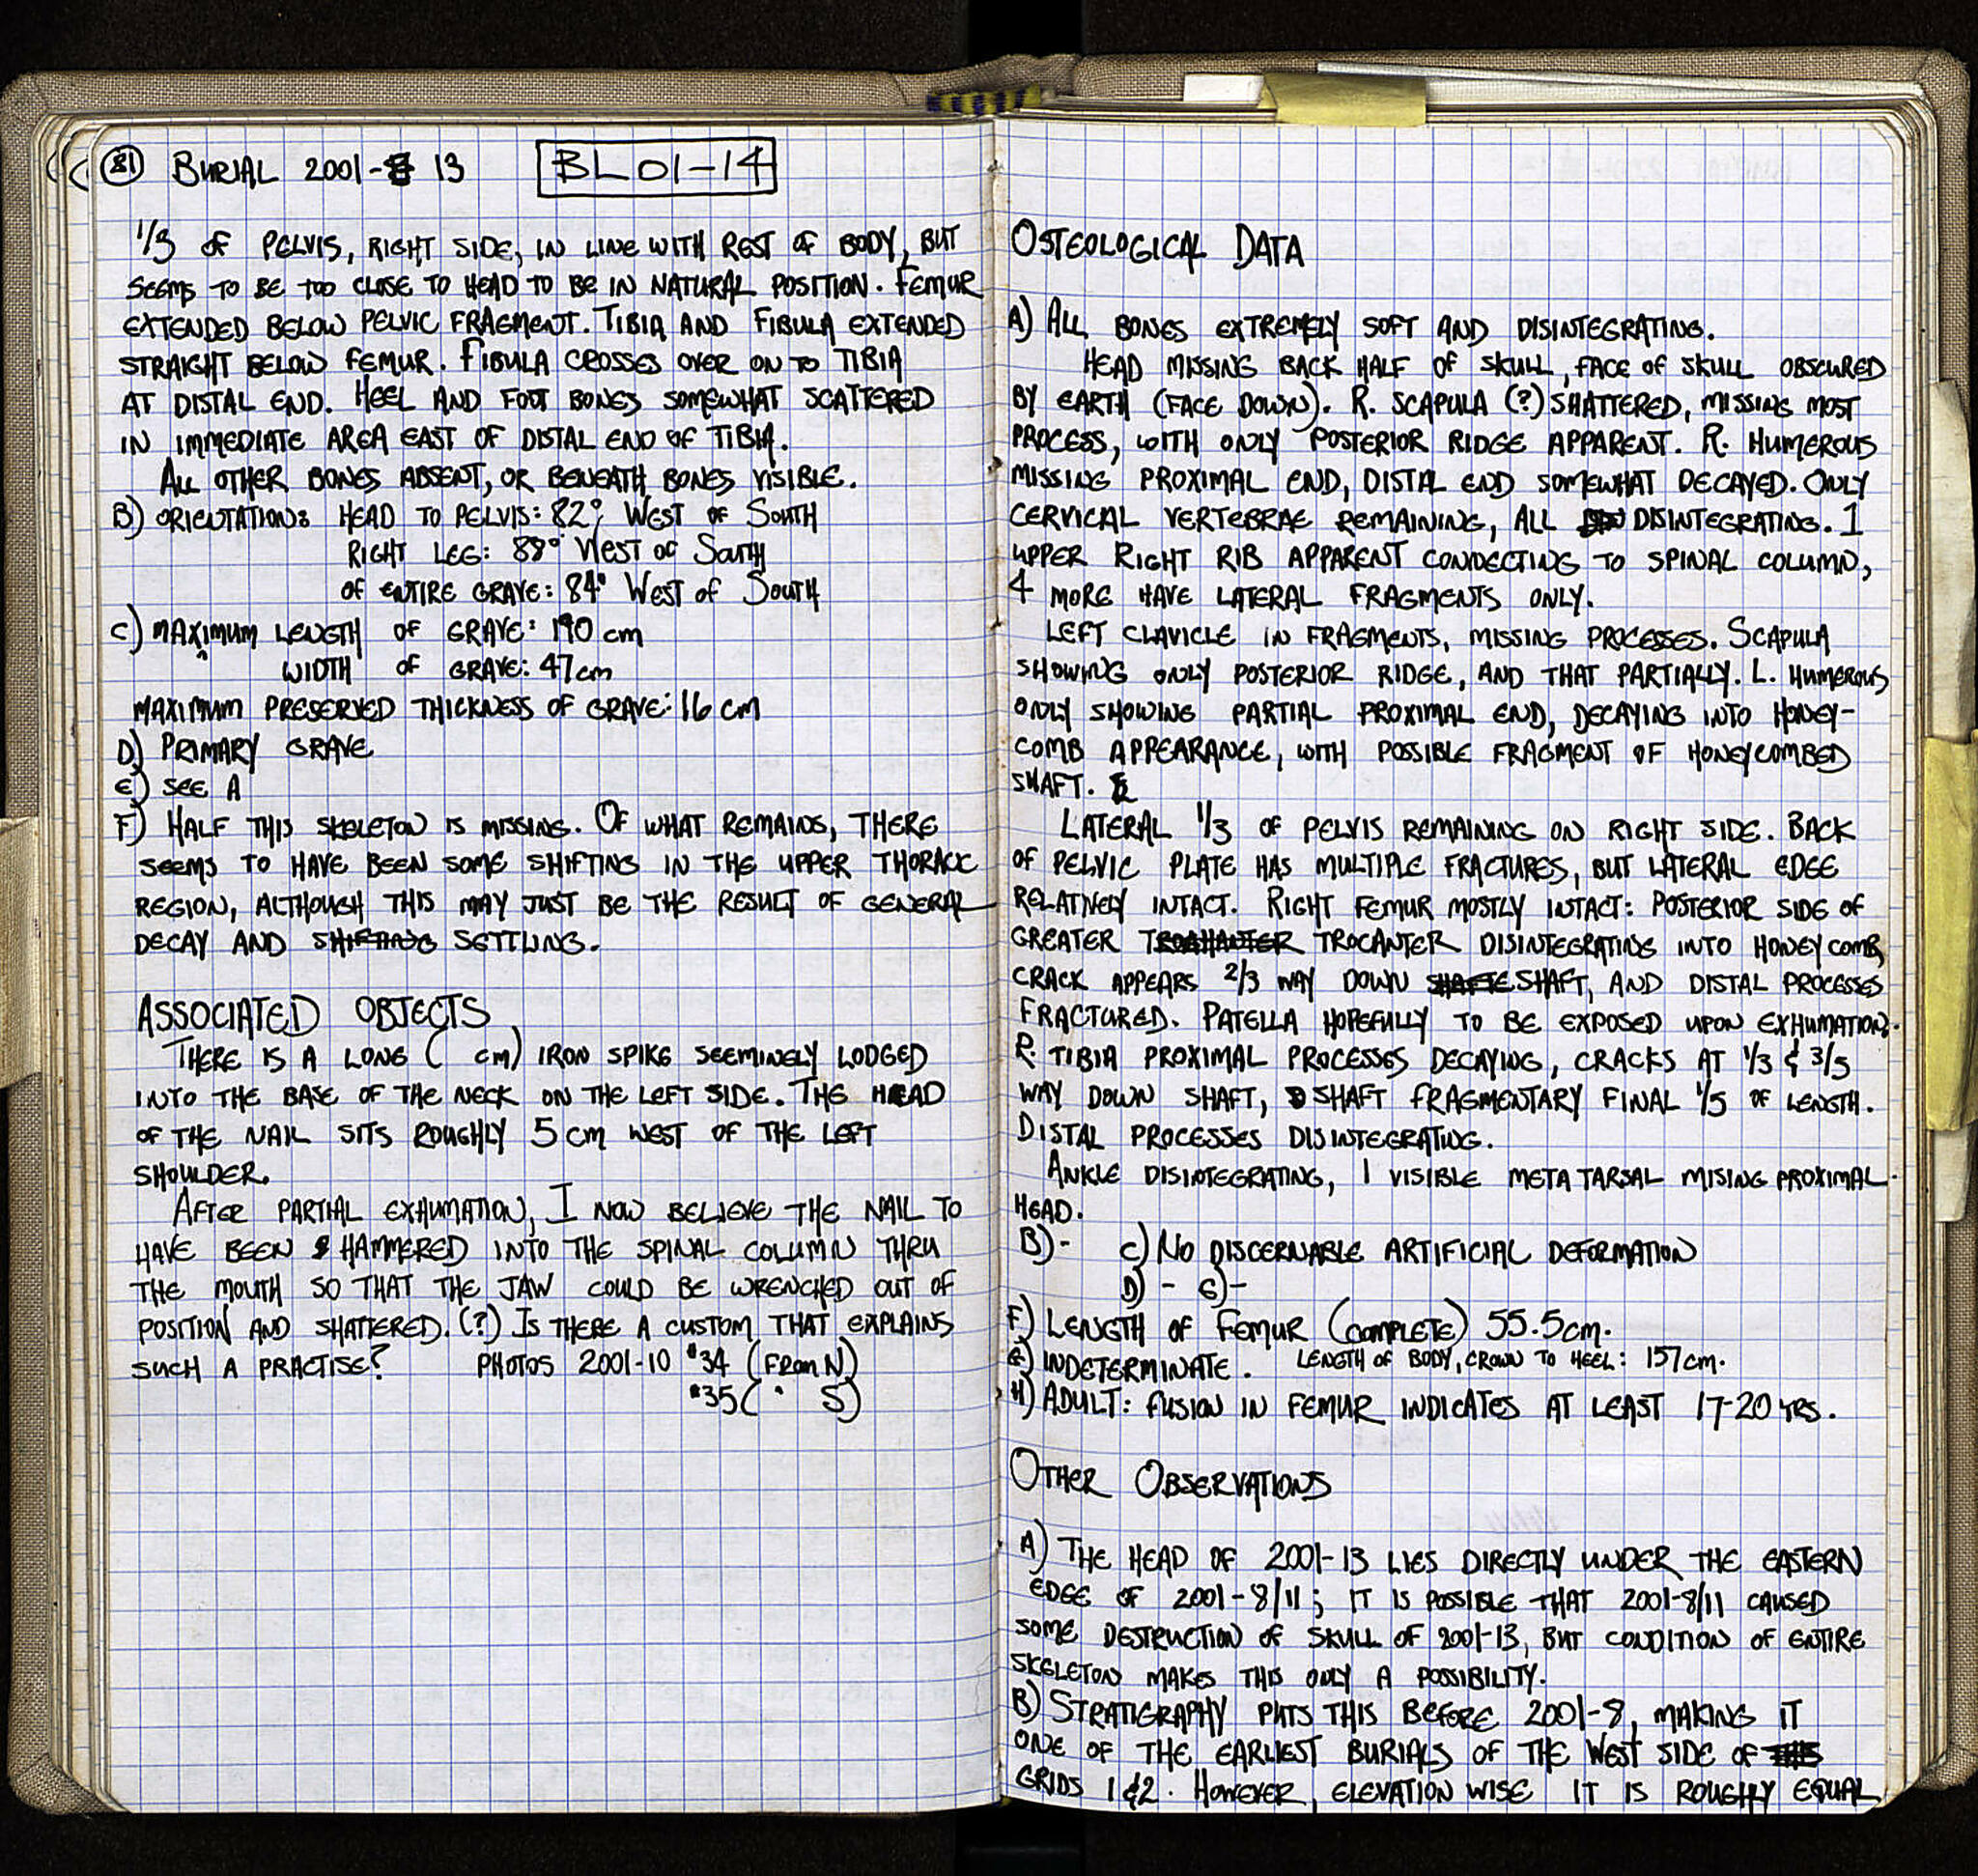 81 BURIAL 2001-8 13 BL01-14
1/3 OF PELVIS, RIGHT SIDE, IN LINE WITH REST OF BODY, BUT
SEEMS TO BE TOO CLOSE TO HEAD TO BE IN NATURAL POSITION. FEMUR
EXTENDED BELOW PELVIC FRAGMENT. TIBIA AND FIBULA EXTENDED
STRAIGHT BELOW FEMUR. FIBULA CROSSES OVER ON TO TIBIA
AT DISTAL END. HEEL AND FOOT BONES SOMEWHAT SCATTERED
IN IMMEDIATE AREA EAST OF DISTAL END OF TIBIA.
ALL OTHER BONES ABSENT, OR BENEATH BONES VISIBLE.
B) ORIENTATION: HEAD TO PELVIS: 82° WEST OF SOUTH
RIGHT LEG: 88° WEST OF SOUTH
OF ENTIRE GRAVE: 84° WEST OF SOUTH
C) MAXIMUM LENGTH OF GRAVE: 190 cm
WIDTH OF GRAVE: 47cm
MAXIMUM PRESERVED THICKNESS OF GRAVE: 16 cm
D) PRIMARY GRAVE
E) SEE A
F) HALF THIS SKELETON IS MISSING. OF WHAT REMAINS, THERE
SEEMS TO HAVE BEEN SOME SHIFTING IN THE UPPER THORACIC
REGION, ALTHOUGH THIS MAY JUST BE THE RESULT OF GENERAL
DECAY AND SHIFTING SETTLING.
ASSOCIATED OBJECTS
THERE IS A LONG ( cm) IRON SPIKE SEEMINGLY LODGED
INTO THE BASE OF THE NECK ON THE LEFT SIDE. THE HEAD
OF THE NAIL SITS ROUGHLY 5 cm WEST OF THE LEFT
SHOULDER.
AFTER PARTIAL EXHUMATION, I NOW BELIEVE THE NAIL TO
HAVE BEEN HAMMERED INTO THE SPINAL COLUMN THRU
THE MOUTH SO THAT THE JAW COULD BE WRENCHED OUT OF
POSITION AND SHATTERED. (?) IS THERE A CUSTOM THAT EXPLAINS
SUCH A PRACTISE? PHOTOS 2001-10 #34 (FROM N)
#35 ( " S)
OSTEOLOGICAL DATA
A) ALL BONES EXTREMELY SOFT AND DISINTEGRATING.
HEAD MISSING BACK HALF OF SKULL, FACE OF SKULL OBSCURED
BY EARTH (FACE DOWN). R. SCAPULA (?) SHATTERED, MISSING MOST
PROCESS, WITH ONLY POSTERIOR RIDGE APPARENT. R. HUMEROUS
MISSING PROXIMAL END, DISTAL END SOMEWHAT DECAYED. ONLY
CERVICAL VERTEBRAE REMAINING, ALL DISINTEGRATING. 1
UPPER RIGHT RIB APPARENT CONNECTING TO SPINAL COLUMN,
4 MORE HAVE LATERAL FRAGMENTS ONLY.
LEFT CLAVICLE IN FRAGMENTS, MISSING PROCESSES. SCAPULA
SHOWING ONLY POSTERIOR RIDGE, AND THAT PARTIALLY. L. HUMEROUS
ONLY SHOWING PARTIAL PROXIMAL END, DECAYING INTO HONEY-
COMB APPEARANCE, WITH POSSIBLE FRAGMENT OF HONEYCOMBED
SHAFT.
LATERAL 1/3 OF PELVIS REMAINING ON RIGHT SIDE. BACK
OF PELVIC PLATE HAS MULTIPLE FRACTURES, BUT LATERAL EDGE
RELATIVELY INTACT. RIGHT FEMUR MOSTLY INTACT: POSTERIOR SIDE OF
GREATER TROCHANTER TROCANTER DISINTEGRATING INTO HONEYCOMB,
CRACK APPEARS 2/3 WAY DOWN SHAFTE SHAFT, AND DISTAL PROCESSES
FRACTURED. PATELLA HOPEFULLY TO BE EXPOSED UPON EXHUMATION.
R. TIBIA PROXIMAL PROCESSES DECAYING, CRACKS AT 1/3 & 3/5
WAY DOWN SHAFT, SHAFT FRAGMENTARY FINAL 1/5 OF LENGTH.
DISTAL PROCESSES DISINTEGRATING.
ANKLE DISINTEGRATING, 1 VISIBLE METATARSAL MISING PROXIMAL
HEAD.
B) - C) NO DISCERNABLE ARTIFICIAL DEFORMATION
D) - E) -
F) LENGTH OF FEMUR (COMPLETE) 55.5cm.
G) INDETERMINATE. LENGTH OF BODY, CROWN TO HEEL: 157cm.
H) ADULT: FUSION IN FEMUR INDICATES AT LEAST 17-20 YRS.
OTHER OBSERVATIONS
A) THE HEAD OF 2001-13 LIES DIRECTLY UNDER THE EASTERN
EDGE OF 2001-8/11; IT IS POSSIBLE THAT 2001-8/11 CAUSED
SOME DESTRUCTION OF SKULL OF 2001-13, BUT CONDITION OF ENTIRE
SKELETON MAKES THIS ONLY A POSSIBILITY.
B) STRATIGRAPHY PUTS THIS BEFORE 2001-8, MAKING IT
ONE OF THE EARLIEST BURIALS OF THE WEST SIDE OF THIS
GRIDS 1 & 2. HOWEVER, ELEVATION WISE IT IS ROUGHLY EQUAL